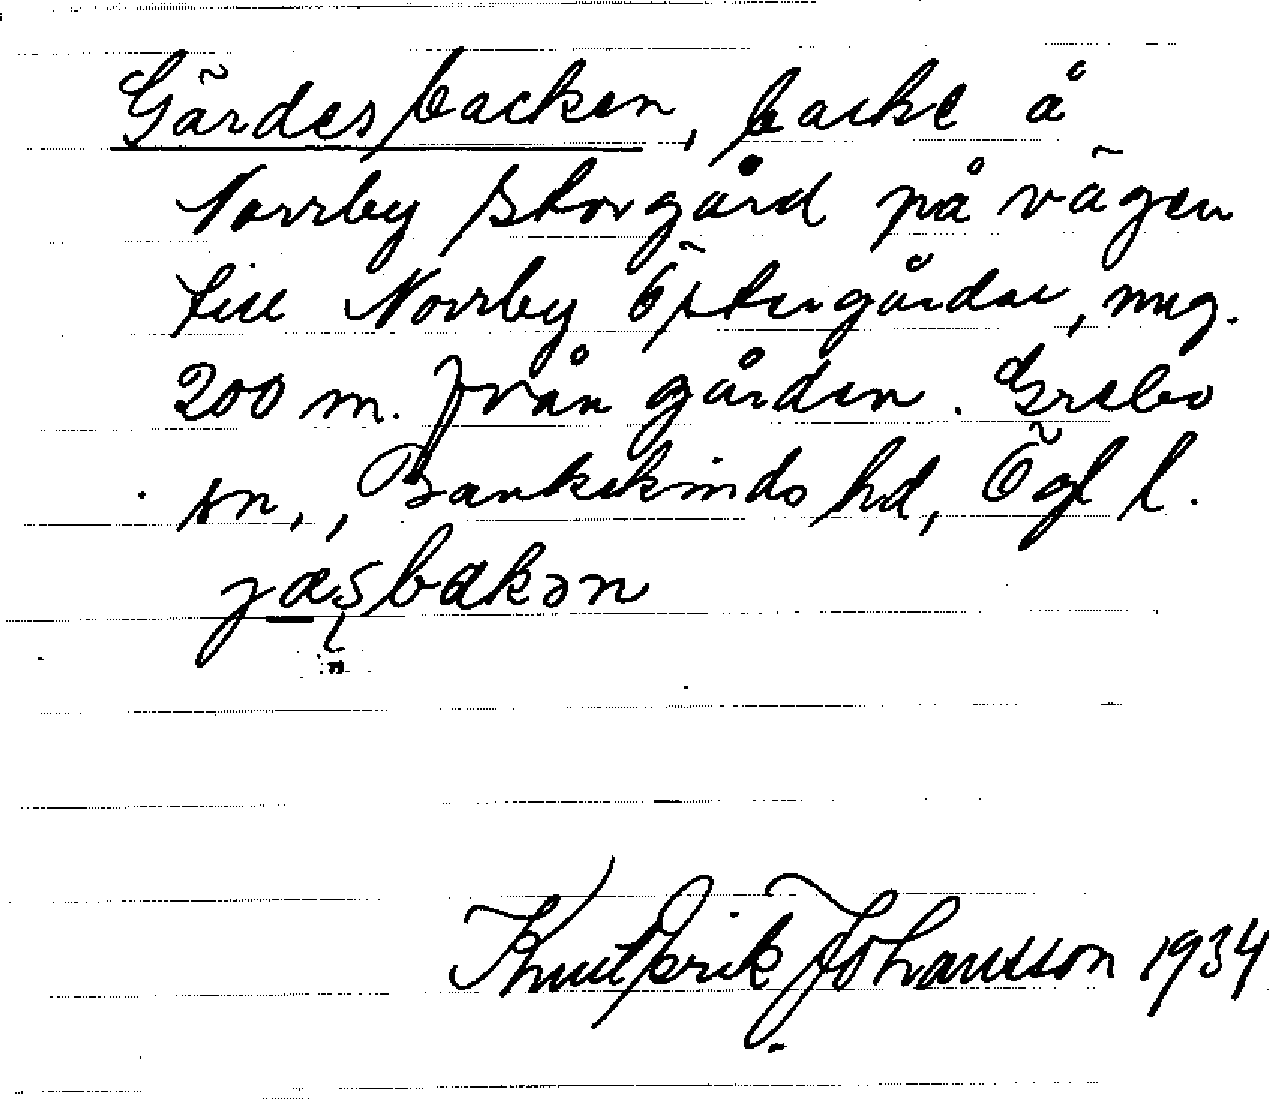 Gärdesbacken, backe å
Norrby Storgård på vägen
till Norrby Östergårdar, mg.
200 m. från gården. Grebo
sn., Bankekinds hd, Ögl l.
jæs̨bakən
Knut Erik Johansson 1934